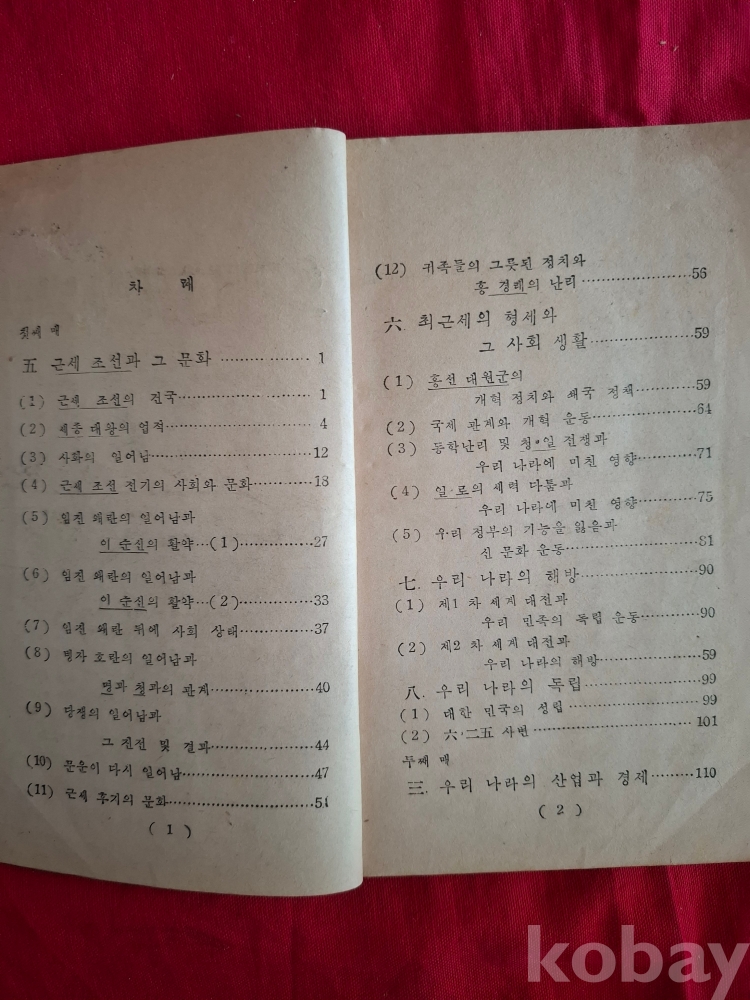 차 례
첫째 매
五 근세 조선과 그 문화 ……………… 1
(1) 근세 조선의 건국 ……………… 1
(2) 세종 대왕의 업적 ……………… 4
(3) 사화의 일어남 ……………… 12
(4) 근세 조선 전기의 사회와 문화 ……… 18
(5) 임진 왜란의 일어남과
이 순신의 활약…(1) ……… 27
(6) 임진 왜란의 일어남과
이 순신의 활약…(2) ……… 33
(7) 임진 왜란 뒤에 사회 상태 ……… 37
(8) 병자 호란의 일어남과
명과 청과의 관계 ……… 40
(9) 당쟁의 일어남과
그 진전 및 결과 ……… 44
(10) 문운이 다시 일어남 ……… 47
(11) 근세 후기의 문화 ……… 51
( 1 )
(12) 귀족들의 그릇된 정치와
홍 경래의 난리 ……… 56
六. 최근세의 형세와
그 사회 생활 ……… 59
(1) 흥선 대원군의
개혁 정치와 쇄국 정책 ……… 59
(2) 국제 관계와 개혁 운동 ……… 64
(3) 동학난리 및 청·일 전쟁과
우리 나라에 미친 영향 ……… 71
(4) 일·로의 세력 다툼과
우리 나라에 미친 영향 ……… 75
(5) 우리 정부의 기능을 잃음과
신 문화 운동 ……… 81
七. 우리 나라의 해방 ……… 90
(1) 제1 차 세계 대전과
우리 민족의 독립 운동 ……… 90
(2) 제2 차 세계 대전과
우리 나라의 해방 ……… 59
八. 우리 나라의 독립 ……… 99
(1) 대한 민국의 성립 ……… 99
(2) 六·二五 사변 ……… 101
두째 매
三. 우리 나라의 산업과 경제 ……… 110
( 2 )
kobay